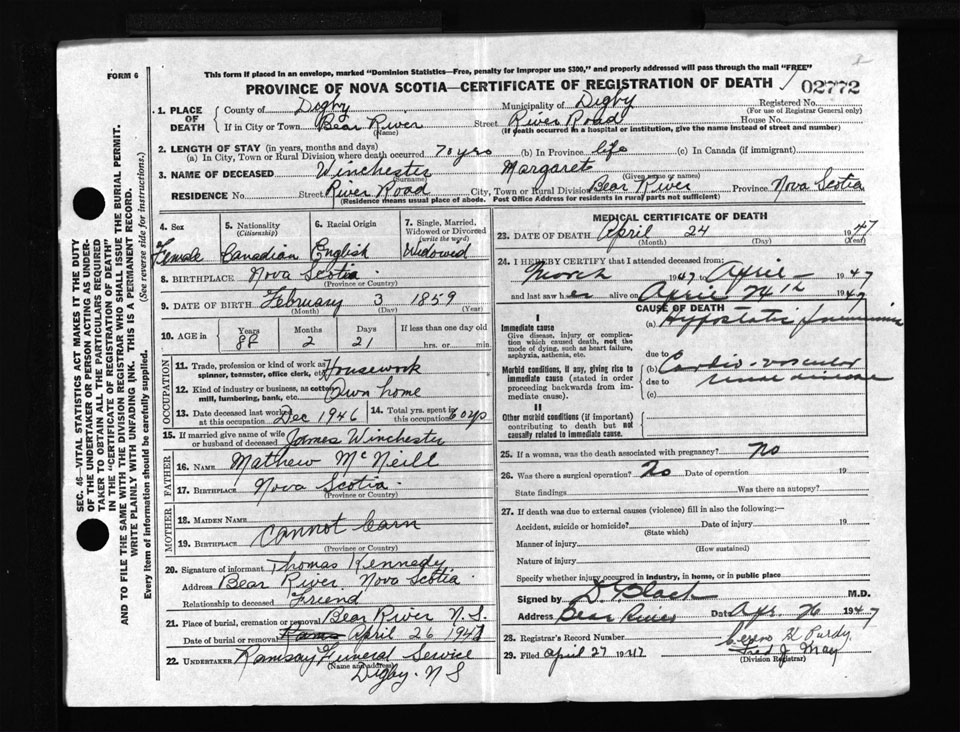 FORM 6
This form if placed in an envelope, marked "Dominion Statistics—Free, penalty for improper use $300," and properly addressed will pass through the mail "FREE"
PROVINCE OF NOVA SCOTIA—CERTIFICATE OF REGISTRATION OF DEATH 02772
1. PLACE OF DEATH County of Digby Municipality of Digby Registered No.
(For use of Registrar General only)
If in City or Town Bear River Street River Road House No.
(Name) (If death occurred in a hospital or institution, give the name instead of street and number)
2. LENGTH OF STAY (in years, months and days)
(a) In City, Town or Rural Division where death occurred 70 yrs (b) In Province life (c) In Canada (if immigrant)
3. NAME OF DECEASED Winchester Margaret
(Surname) (Given name or names)
RESIDENCE No. Street River Road City, Town or Rural Division Bear River Province Nova Scotia
(Residence means usual place of abode. Post Office Address for residents in rural parts not sufficient)
SEC. 46—VITAL STATISTICS ACT MAKES IT THE DUTY
OF THE UNDERTAKER OR PERSON ACTING AS UNDER-
TAKER TO OBTAIN ALL THE PARTICULARS REQUIRED
IN THE "CERTIFICATE OF REGISTRATION OF DEATH"
AND TO FILE THE SAME WITH THE DIVISION REGISTRAR WHO SHALL ISSUE THE BURIAL PERMIT.
WRITE PLAINLY WITH UNFADING INK. THIS IS A PERMANENT RECORD.
Every item of information should be carefully supplied. (See reverse side for instructions.)
4. Sex 5. Nationality (Citizenship) 6. Racial Origin 7. Single, Married, Widowed or Divorced (write the word)
Female Canadian English Widowed
8. BIRTHPLACE Nova Scotia
(Province or Country)
9. DATE OF BIRTH February 3 1859
(Month) (Day) (Year)
10. AGE in Years Months Days If less than one day old
88 2 21 hrs. or min.
OCCUPATION
11. Trade, profession or kind of work as spinner, teamster, office clerk, etc. Housework
12. Kind of industry or business, as cotton mill, lumbering, bank, etc. Own home
13. Date deceased last worked at this occupation Dec 1946 14. Total yrs. spent in this occupation 60 yrs
15. If married give name of wife or husband of deceased James Winchester
FATHER
16. NAME Mathew McNeill
17. BIRTHPLACE Nova Scotia
(Province or Country)
MOTHER
18. MAIDEN NAME
19. BIRTHPLACE Cannot learn
(Province or Country)
20. Signature of informant Thomas Kennedy
Address Bear River Nova Scotia
Relationship to deceased Friend
21. Place of burial, cremation or removal Bear River N.S.
Date of burial or removal April 26 1947
22. UNDERTAKER Ramsay Funeral Service
(Name and address)
Digby N S
MEDICAL CERTIFICATE OF DEATH
23. DATE OF DEATH April 24 1947
(Month) (Day) (Year)
24. I HEREBY CERTIFY that I attended deceased from:
March 1947, April 1947
and last saw her alive on April 24th 1947
CAUSE OF DEATH
I
Immediate cause (a) Hypostatic pneumonia
Give disease, injury or complica-
tion which caused death, not the
mode of dying, such as heart failure,
asphyxia, asthenia, etc.
due to
Morbid conditions, if any, giving rise to (b) Cardio-vascular
immediate cause (stated in order due to renal disease
proceeding backwards from im-
mediate cause). (c)
II
Other morbid conditions (if important)
contributing to death but not
causally related to immediate cause.
25. If a woman, was the death associated with pregnancy? No
26. Was there a surgical operation? No Date of operation 19
State findings Was there an autopsy?
27. If death was due to external causes (violence) fill in also the following:—
Accident, suicide or homicide? Date of injury 19
(State which)
Manner of injury
(How sustained)
Nature of injury
Specify whether injury occurred in industry, in home, or in public place
Signed by Black M.D.
Address Bear River Date Apr. 26 1947
28. Registrar's Record Number
H Purdy
29. Filed April 27 1947 Fred J. May
(Division Registrar)